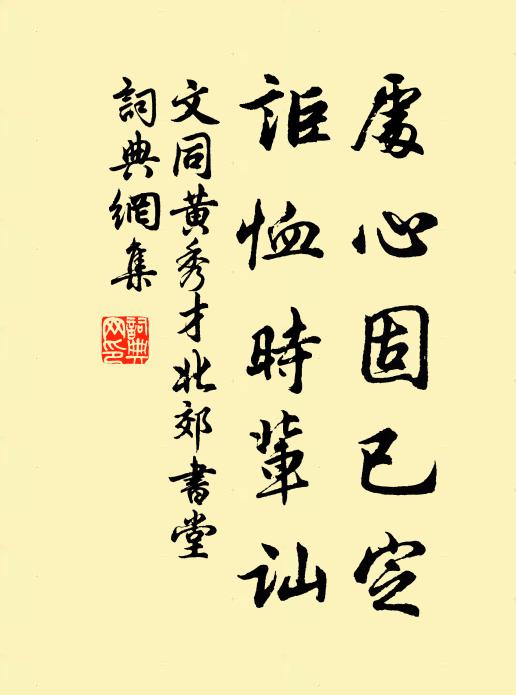 處心固已定
詎恤時輩訕
文同黃秀才北郊書堂
詞典網集
詞典網印